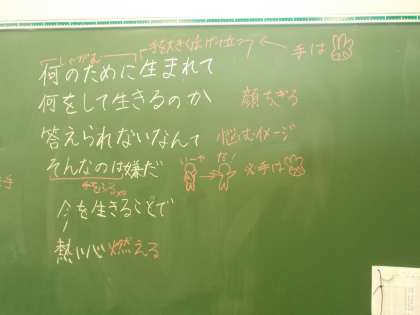 しゃがむ 手を大きく広げ立つ 手は
何のために生まれて
何をして生きるのか 顔ちぎる
答えられないなんて 悩むイメージ
そんなのは嫌だ いーや だ! ※手は
手をふる
今を生きることで
熱い心燃える
手